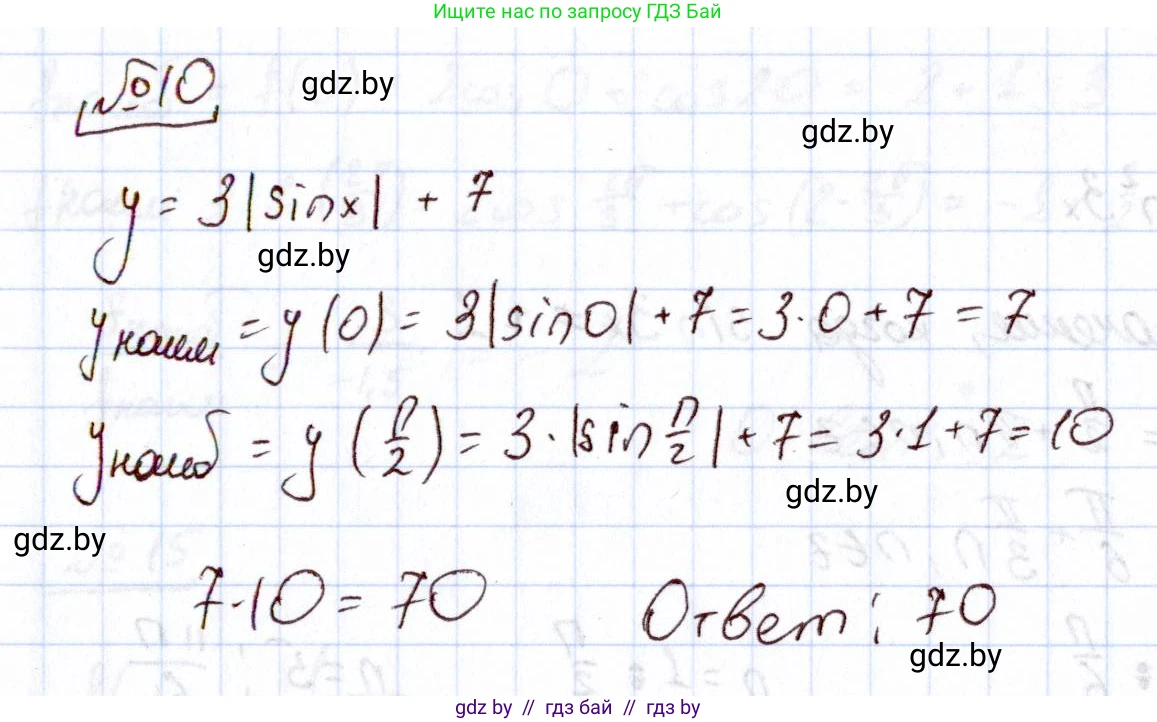 Ищите нас по запросу ГДЗ Бай
№10
gdz.by
gdz.by
y = 3|sinx| + 7
gdz.by
yнаим = y(0) = 3|sin0| + 7 = 3·0 + 7 = 7
yнаиб = y(π/2) = 3·|sin π/2| + 7 = 3·1 + 7 = 10
gdz.by
gdz.by
7·10 = 70
Ответ: 70
gdz.by
gdz.by // гдз бай // гдз by